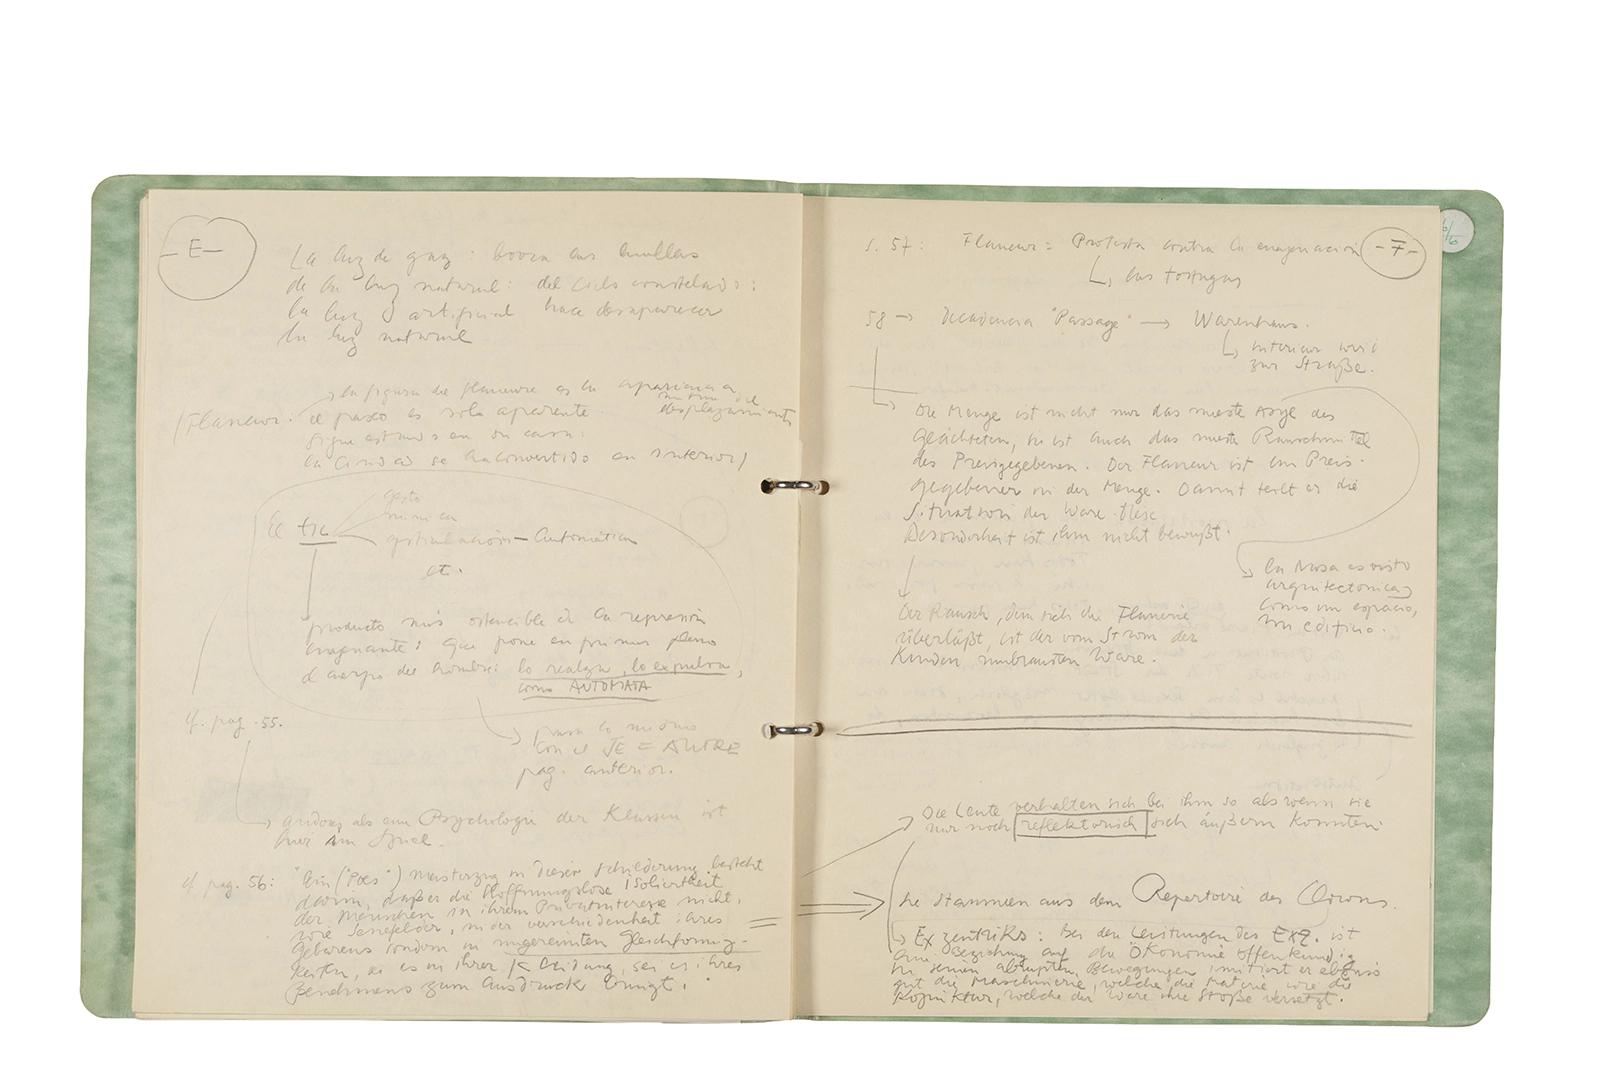 -E-
La luz de gas: borra las huellas
de la luz natural: del cielo constelado:
la luz artificial hace desaparecer
la luz natural
la figura de flanerie es la apariencia
misma del
desplazamiento
(Flaneur: el paseo es solo aparente
sigue estando en su casa:
la ciudad se ha convertido en interior)
El tic
gesto
mimica
gesticulación — Automática
etc.
producto más ostensible de la represión
: que pone en primer plano
el cuerpo del hombre: lo realza, lo expulsa,
como AUTOMATA
cf. pag. 55.
pasa lo mismo
con el JE = AUTRE
pag. anterior.
anderes als eine Psychologie der Klassen ist
hier im Spiel.
cf. pag. 56: "Sein ("Poes") Meisterzug in dieser Schilderung besteht
darin, daßer die hoffnungslose Isoliertheit
der Menschen in ihrem Privatinteresse nicht,
wie Senefelder, in der verschiedenheit ihres
Gebarens sondern in ungereimten Gleichförmig-
keiten, sei es in ihrer Kleidung, sei es ihres
Benehmens zum Ausdruck bringt."
-F-
S. 57: Flaneur = Protesta contra la enajenación
las tortugas
58 → Decadencia "Passage" → Warenhaus.
interieur wird
zur Straße.
Die Menge ist nicht nur das neueste Asyl des
Geächteten, sie ist auch das neueste Rauschmittel
des Preisgegebenen. Der Flaneur ist ein Preis-
gegebener in der Menge. Damit teilt er die
Situation der Ware. Diese
Besonderheit ist ihm nicht bewußt.
la masa es visto
arquitectonica,
como un espacio,
un edificio.
Der Rausch, dem sich die Flanerie
überläßt, ist der vom Strom der
Kunden umbrausten Ware.
Die Leute verhalten sich bei ihm so als wenn sie
nur noch reflektorisch sich äußern könnten.
Sie Stammen aus dem Repertoire des Clowns.
Exzentriks: Bei den Leistungen des Exz. ist
eine Beziehung auf die Ökonomie offenkundig.
In seinen abrupten Bewegungen imitiert er ebenso
gut die Maschinerie, welche die Materie, wie die
Konjunktur, welche der Ware ihre Stöße versetzt.